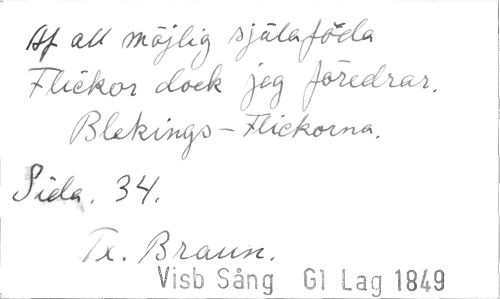 Af all möjlig själaföda
Flickor dock jag föredrar.
Blekings-Flickorna.
Sida. 34.
Tx. Braun.
Visb Sång Gl Lag 1849